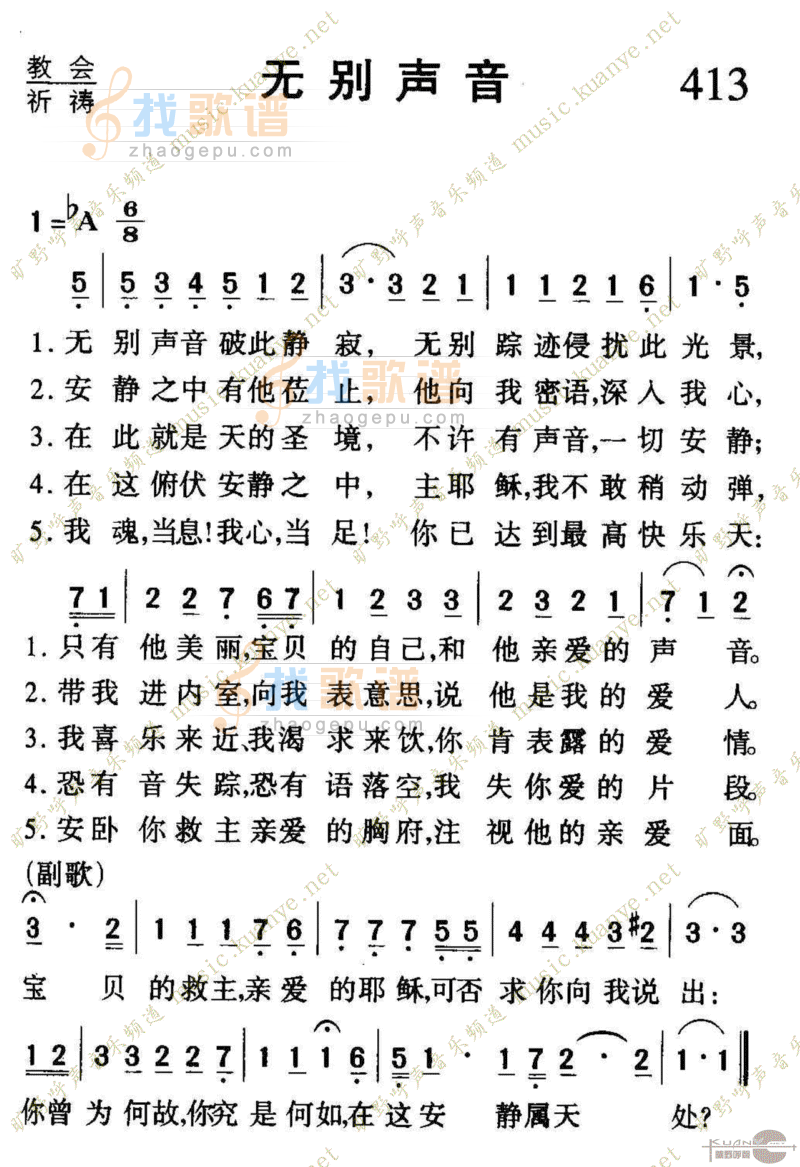 教会
祈祷
无别声音
413
找歌谱
zhaogepu.com
旷野呼声音乐频道 music.kuanye.net
1=♭A 6/8
5 | 5 3 4 5 1 2 | 3 · 3 2 1 | 1 1 2 1 6 | 1 · 5
1. 无别声音破此静寂, 无别踪迹侵扰此光景,
2. 安静之中有他莅止, 他向我密语,深入我心,
3. 在此就是天的圣境, 不许有声音,一切安静;
4. 在这俯伏安静之中, 主耶稣,我不敢稍动弹,
5. 我魂,当息!我心,当足! 你已达到最高快乐天:
7 1 | 2 2 7 6 7 | 1 2 3 3 | 2 3 2 1 | 7 1 2
1. 只有他美丽,宝贝的自己,和他亲爱的声音。
2. 带我进内室,向我表意思,说他是我的爱人。
3. 我喜乐来近、我渴求来饮,你肯表露的爱情。
4. 恐有音失踪,恐有语落空,我失你爱的片段。
5. 安卧你救主亲爱的胸府,注视他的亲爱面。
(副歌)
3 · 2 | 1 1 1 7 6 | 7 7 7 5 5 | 4 4 4 3 #2 | 3 · 3
宝贝的救主,亲爱的耶稣,可否求你向我说出:
1 2 | 3 3 2 2 7 | 1 1 1 6 | 5 1 · 1 7 2 · 2 | 1 · 1 ‖
你曾为何故,你究是何如,在这安静属天处?
KUANYE
旷野呼声